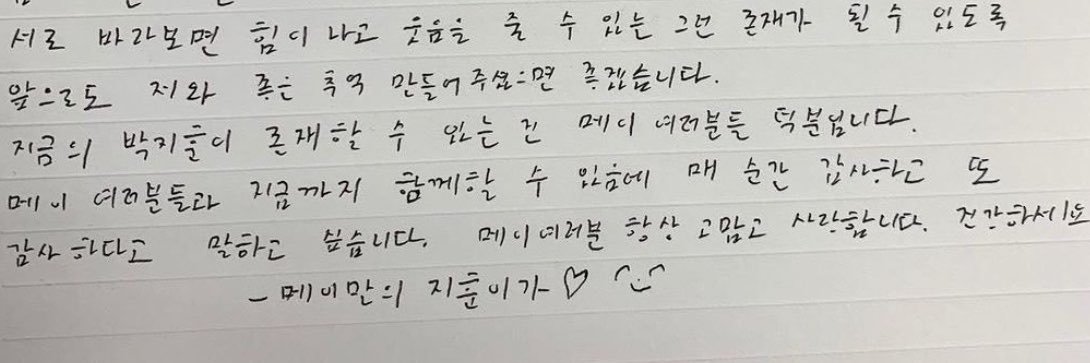 서로 바라보면 힘이 나고 웃음을 줄 수 있는 그런 존재가 될 수 있도록
앞으로도 저와 좋은 추억 만들어주셨으면 좋겠습니다.
지금의 박지훈이 존재할 수 있는 건 메이 여러분들 덕분입니다.
메이 여러분들과 지금까지 함께할 수 있음에 매 순간 감사하고 또
감사하다고 말하고 싶습니다. 메이여러분 항상 고맙고 사랑합니다. 건강하세요
- 메이만의 지훈이가 ♡